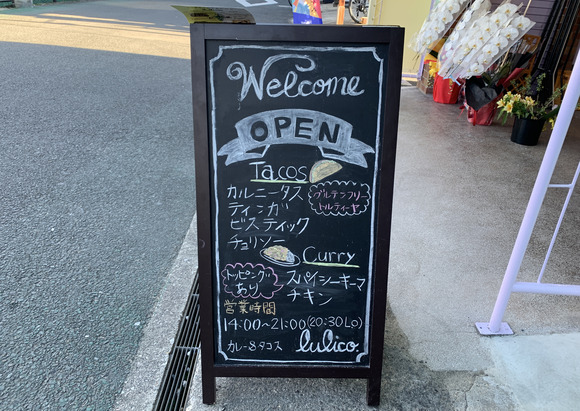 Welcome
OPEN
Tacos
カルニータス
グルテンフリー
トルティーヤ
ティンガ
ビスティック
チョリソー
Curry
トッピング
あり
スパイシーキーマ
チキン
営業時間
14:00~21:00(20:30LO)
カレー&タコス lulico.